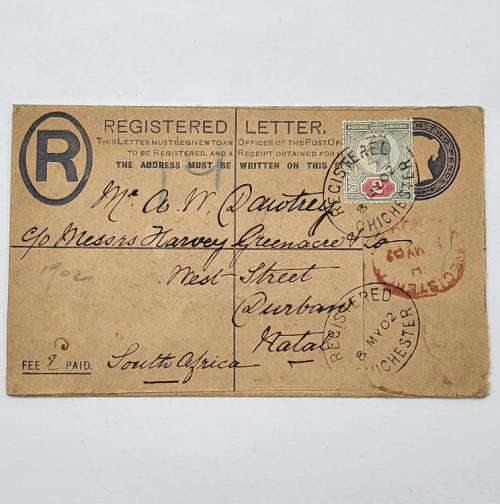 R
REGISTERED LETTER.
THIS LETTER MUST BE GIVEN TO AN OFFICER OF THE POST OF
TO BE REGISTERED, AND A RECEIPT OBTAINED FOR
THE ADDRESS MUST BE WRITTEN ON THIS
POSTAGE & REVENUE
REGISTERED
8 MY 02
CHICHESTER
Mr A. W. Dawtrey
c/o Messrs Harvey Greenacre & Co
West Street
Durban
Natal
South Africa
1902
FEE PAID.
REGISTERED
8 MY 02
CHICHESTER